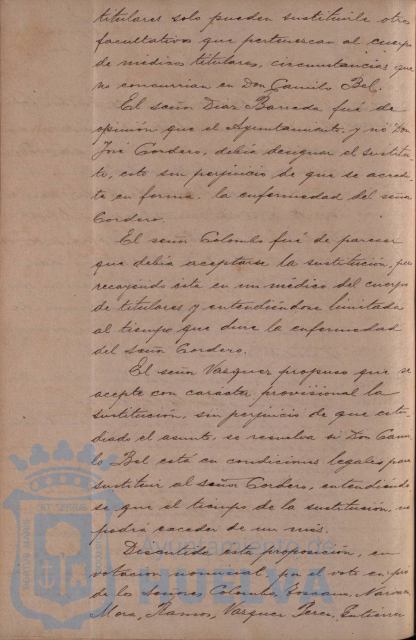 titulares solo pueden sustituirle otros
facultativos que pertenezcan al cuerpo
de médicos titulares, circunstancias que
no concurrian en Don Camilo Bel.
El señor Diaz Barreda fué de
opinión que el Ayuntamiento, y no Don
José Cordero, debia designar el sustitu-
to, esto sin perjuicio de que se acredi-
te en forma la enfermedad del señor
Cordero.
El señor Colombo fué de parecer
que debia aceptarse la sustitución, pero
recayendo ésta en un médico del cuerpo
de titulares y entendiéndose limitada
al tiempo que dure la enfermedad
del Señor Cordero.
El señor Vazquez propuso que se
acepte con carácter provisional la
sustitución, sin perjuicio de que estu-
diado el asunto, se resuelva si Don Cami-
lo Bel está en condiciones legales para
sustituir al señor Cordero, entendiendo
se que el tiempo de la sustitución, no
podrá exceder de un mes.
Discutida esta proposición, en
votación nominal, por el voto en pró
de los Señores Colombo, Narvaez
Mora, Ramos, Vazquez Perez, Gutierrez
Ayuntamiento de
HUELVA